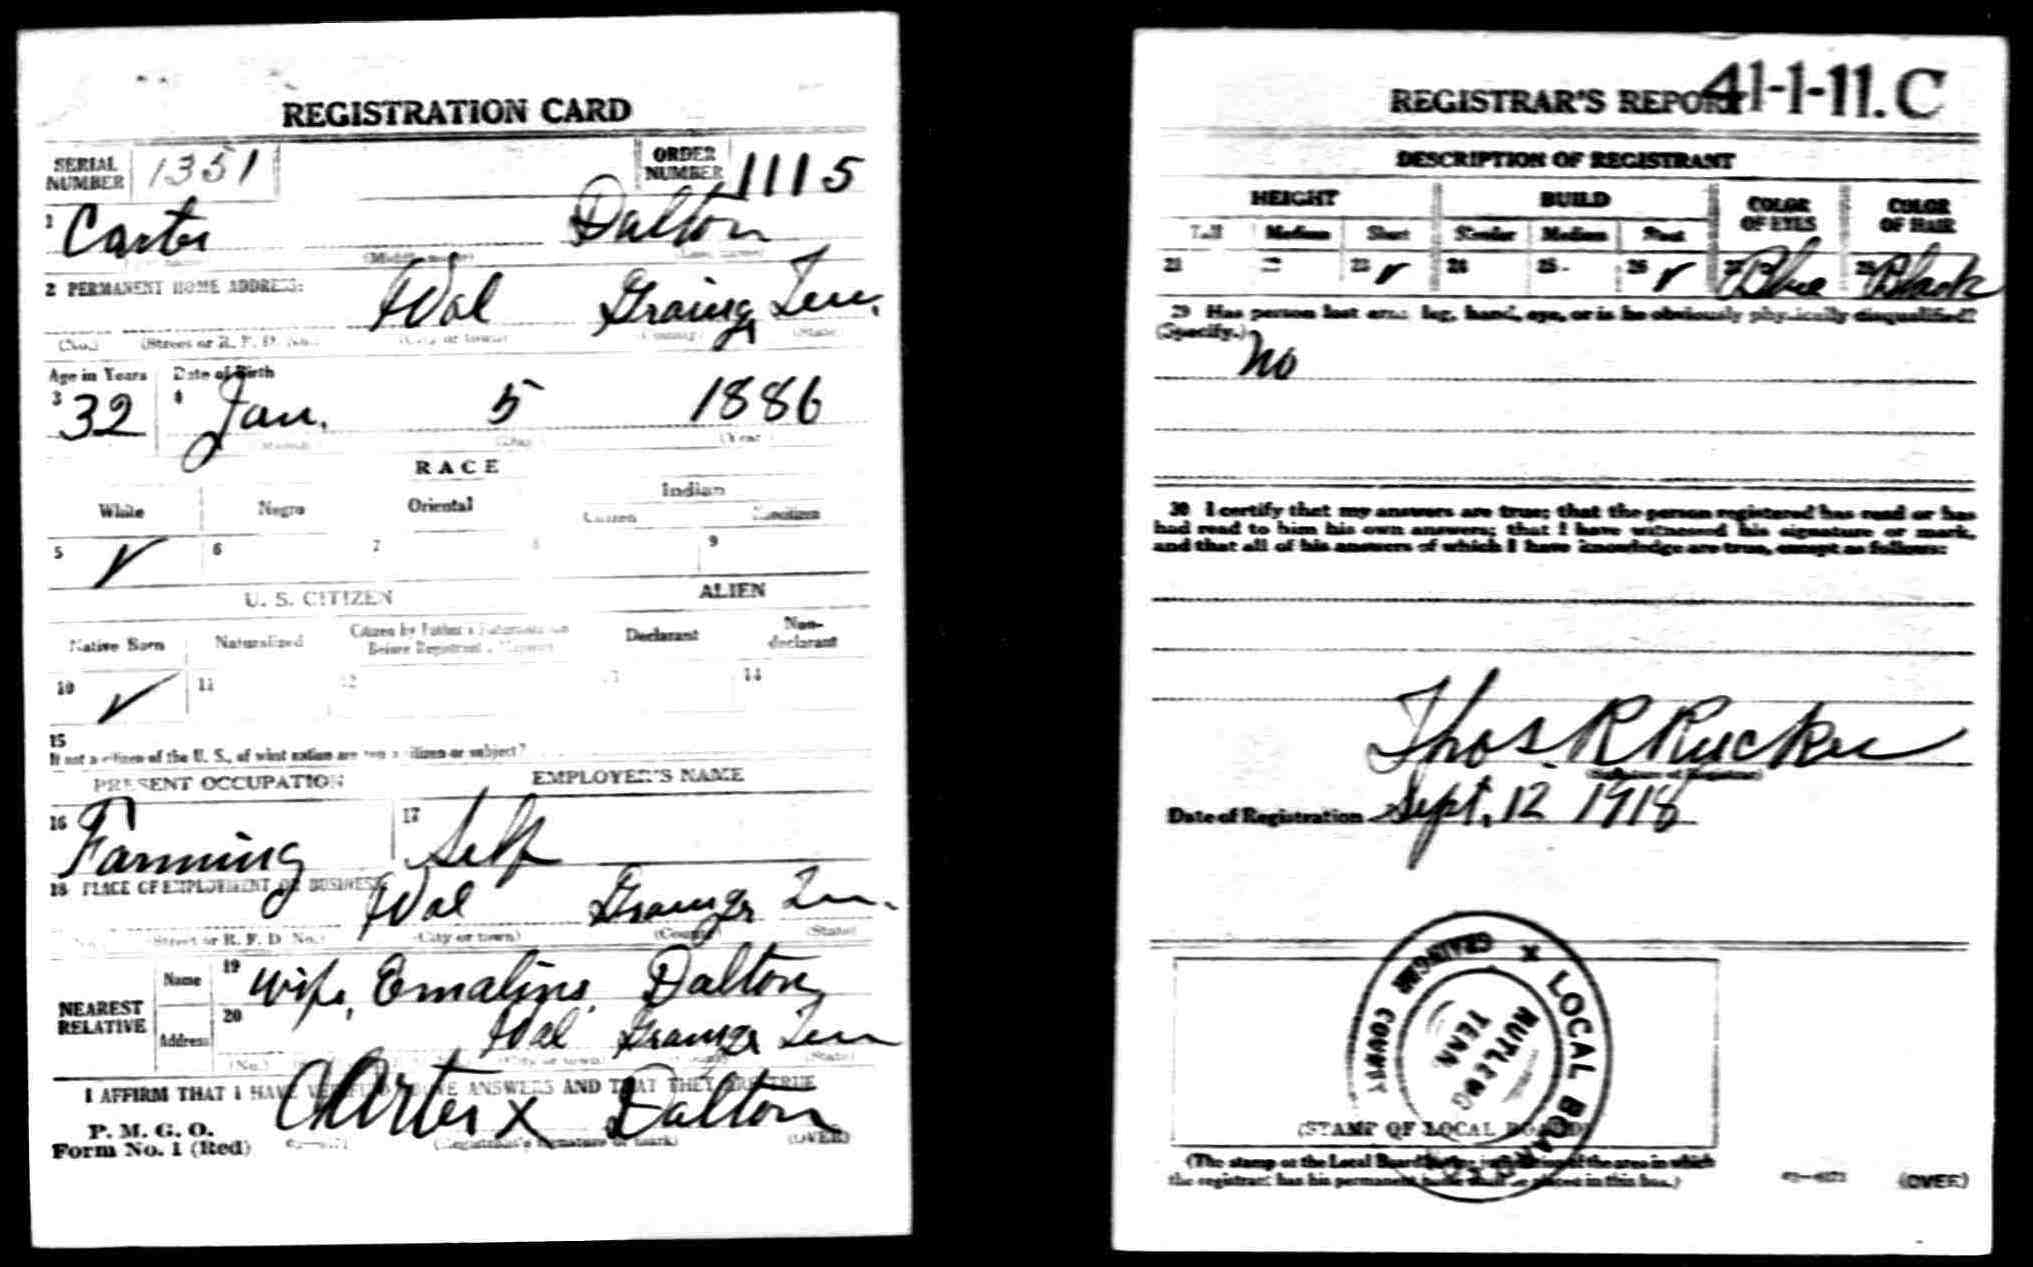 REGISTRATION CARD
SERIAL NUMBER 1351
ORDER NUMBER 1115
1 Carter Dalton
(Middle name) (Last name)
2 PERMANENT HOME ADDRESS:
Idol Grainger Ten.
(No.) (Street or R. F. D. No.) (City or town) (County) (State)
Age in Years Date of Birth
3 32 4 Jan. 5 1886
(Month) (Day) (Year)
RACE
White Negro Oriental Indian
Citizen Noncitizen
5 ✓ 6 7 8 9
U. S. CITIZEN ALIEN
Native Born Naturalized Citizen by Father's Naturalization Before Registrant's Majority Declarant Non-declarant
10 ✓ 11 12 13 14
15
If not a citizen of the U. S., of what nation are you a citizen or subject?
PRESENT OCCUPATION EMPLOYER'S NAME
16 Farming 17 Self
18 PLACE OF EMPLOYMENT OR BUSINESS
Idol Grainger Ten.
(No.) (Street or R. F. D. No.) (City or town) (County) (State)
NEAREST RELATIVE
Name 19 Wife, Emaline Dalton
Address 20 Idol Grainger Ten
(No.) (City or town) (State)
I AFFIRM THAT I HAVE VERIFIED ABOVE ANSWERS AND THAT THEY ARE TRUE
P. M. G. O.
Form No. 1 (Red)
Carter X Dalton
(Registrant's signature or mark) (OVER)
REGISTRAR'S REPORT 41-1-11.C
DESCRIPTION OF REGISTRANT
HEIGHT BUILD COLOR OF EYES COLOR OF HAIR
Tall Medium Short Slender Medium Stout
21 22 23 ✓ 24 25 26 ✓ 27 Blue 28 Black
29 Has person lost arm, leg, hand, eye, or is he obviously physically disqualified?
(Specify.) No
30 I certify that my answers are true; that the person registered has read or has
had read to him his own answers; that I have witnessed his signature or mark,
and that all of his answers of which I have knowledge are true, except as follows:
Thos. R Rucker
(Signature of Registrar)
Date of Registration Sept. 12 1918
LOCAL BOARD
GRAINGER COUNTY
RUTLEDGE
TENN
(STAMP OF LOCAL BOARD)
(The stamp of the Local Board having jurisdiction of the area in which
the registrant has his permanent home shall be placed in this box.)
(OVER)